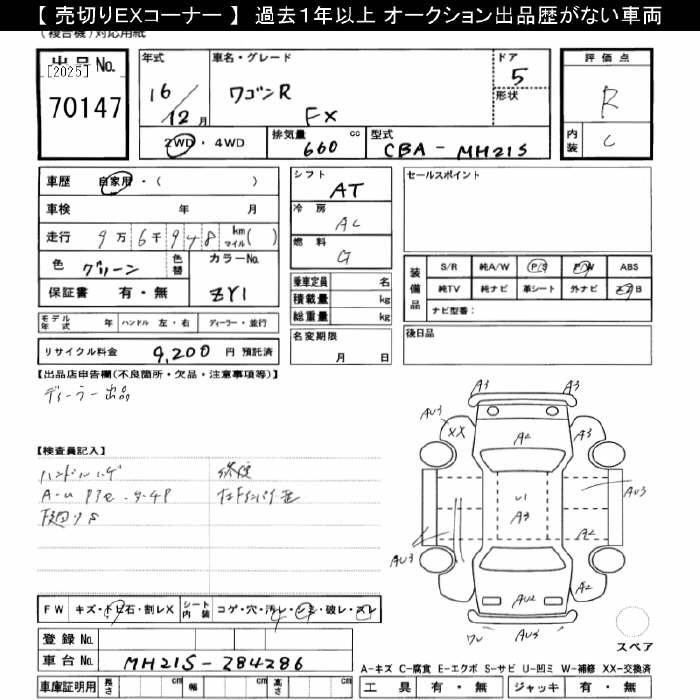 【 売切りEXコーナー 】 過去1年以上 オークション出品歴がない車両
(複合機)対応用紙
出品No.
[2025]
70147
年式
16
12月
車名・グレード
ワゴンR
FX
ドア
5
形状
評価点
R
内装
C
2WD・4WD
排気量 660 cc
型式 CBA-MH21S
車歴 自家用・( )
車検 年 月
走行 9万6千948 km マイル( )
色 グリーン
色替
カラーNo. ZY1
保証書 有・無
シフト
AT
冷房
AC
燃料
G
乗車定員 名
積載量 kg
総重量 kg
セールスポイント
装備品
S/R 純A/W P/S P/W ABS
純TV 純ナビ 革シート 外ナビ エアB
ナビ型番:
モデル年式 年 ハンドル 左・右 ディーラー・並行
リサイクル料金 9,200 円 預託済
名変期限
月 日
後日品
【出品店申告欄(不良箇所・欠品・注意事項等)】
ディーラー出品
【検査員記入】
ハンドルハゲ
修復
下廻りS
A3 A3
AU3
XX
A2
A3
U1
A3
AU3
A2
AU3
A2
AU2
AU3
スペア
FW キズ・トビ石・割レX
シート内装 コゲ・穴・汚レ・シミ・破レ・スレ
登録No.
車台No. MH21S-284286
車庫証明用 長さ cm 幅 cm 高さ cm
A-キズ C-腐食 E-エクボ S-サビ U-凹ミ W-補修 XX-交換済
工具 有・無 ジャッキ 有・無